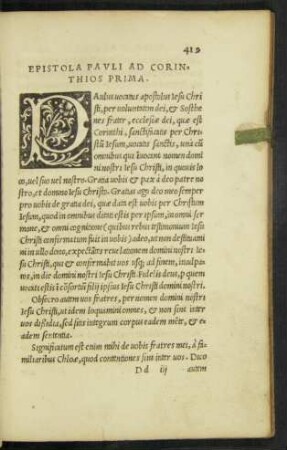 419
EPISTOLA PAVLI AD CORIN-
THIOS PRIMA.
PAulus uocatus apostolus Iesu Chri
sti, per uoluntatem dei, & Sosthe
nes frater, ecclesiæ dei, quæ est
Corinthi, sanctificatis per Chri
stū Iesum, uocatis sanctis, unà cū
omnibus qui inuocant nomen domi
ni nostri Iesu Christi, in quouis lo
co, uel suo uel nostro. Gratia uobis & pax à deo patre no
stro, et domino Iesu Christo. Gratias ago deo meo semper
pro uobis de gratia dei, quæ data est uobis per Christum
Iesum, quod in omnibus ditati estis per ipsum, in omni ser
mone, & omni cognitione (quibus rebus testimonium Iesu
Christi confirmatum fuit in uobis) adeo, ut non destituami
ni in ullo dono, expectātes reuelationem domini nostri Ie
su Christi, qui & confirmabit uos usq; ad finem, inculpa
tos, in die domini nostri Iesu Christi. Fidelis deus, p quem
uocati estis ī cōsortiū filij ipsius Iesu Christi domini nostri.
Obsecro autem uos fratres, per nomen domini nostri
Iesu Christi, ut idem loquamini omnes, & non sint inter
uos dissidia, sed sitis integrum corpus eadem mēte, & ea
dem sententia.
Significatum est enim mihi de uobis fratres mei, à fa
miliaribus Chloæ, quod contentiones sint inter uos. Dico
D d iij autem